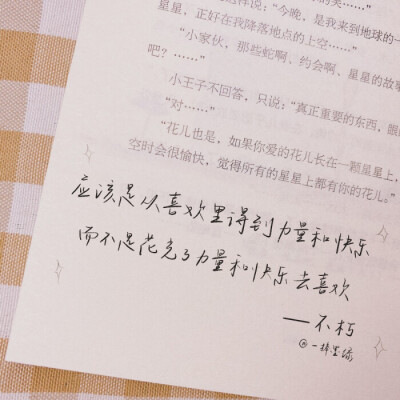 说：“今晚，是我来到地球的一
星星，正好在我降落地点的上空……”
“小家伙，那些蛇啊、约会啊、星星的故事
吧？……”
小王子不回答，只说：“真正重要的东西，眼
“对……”
“花儿也是，如果你爱的花儿长在一颗星星上，
空时会很愉快，觉得所有的星星上都有你的花儿。”
应该是从喜欢里得到力量和快乐
而不是花光了力量和快乐去喜欢
——不朽
@一梓堇绿